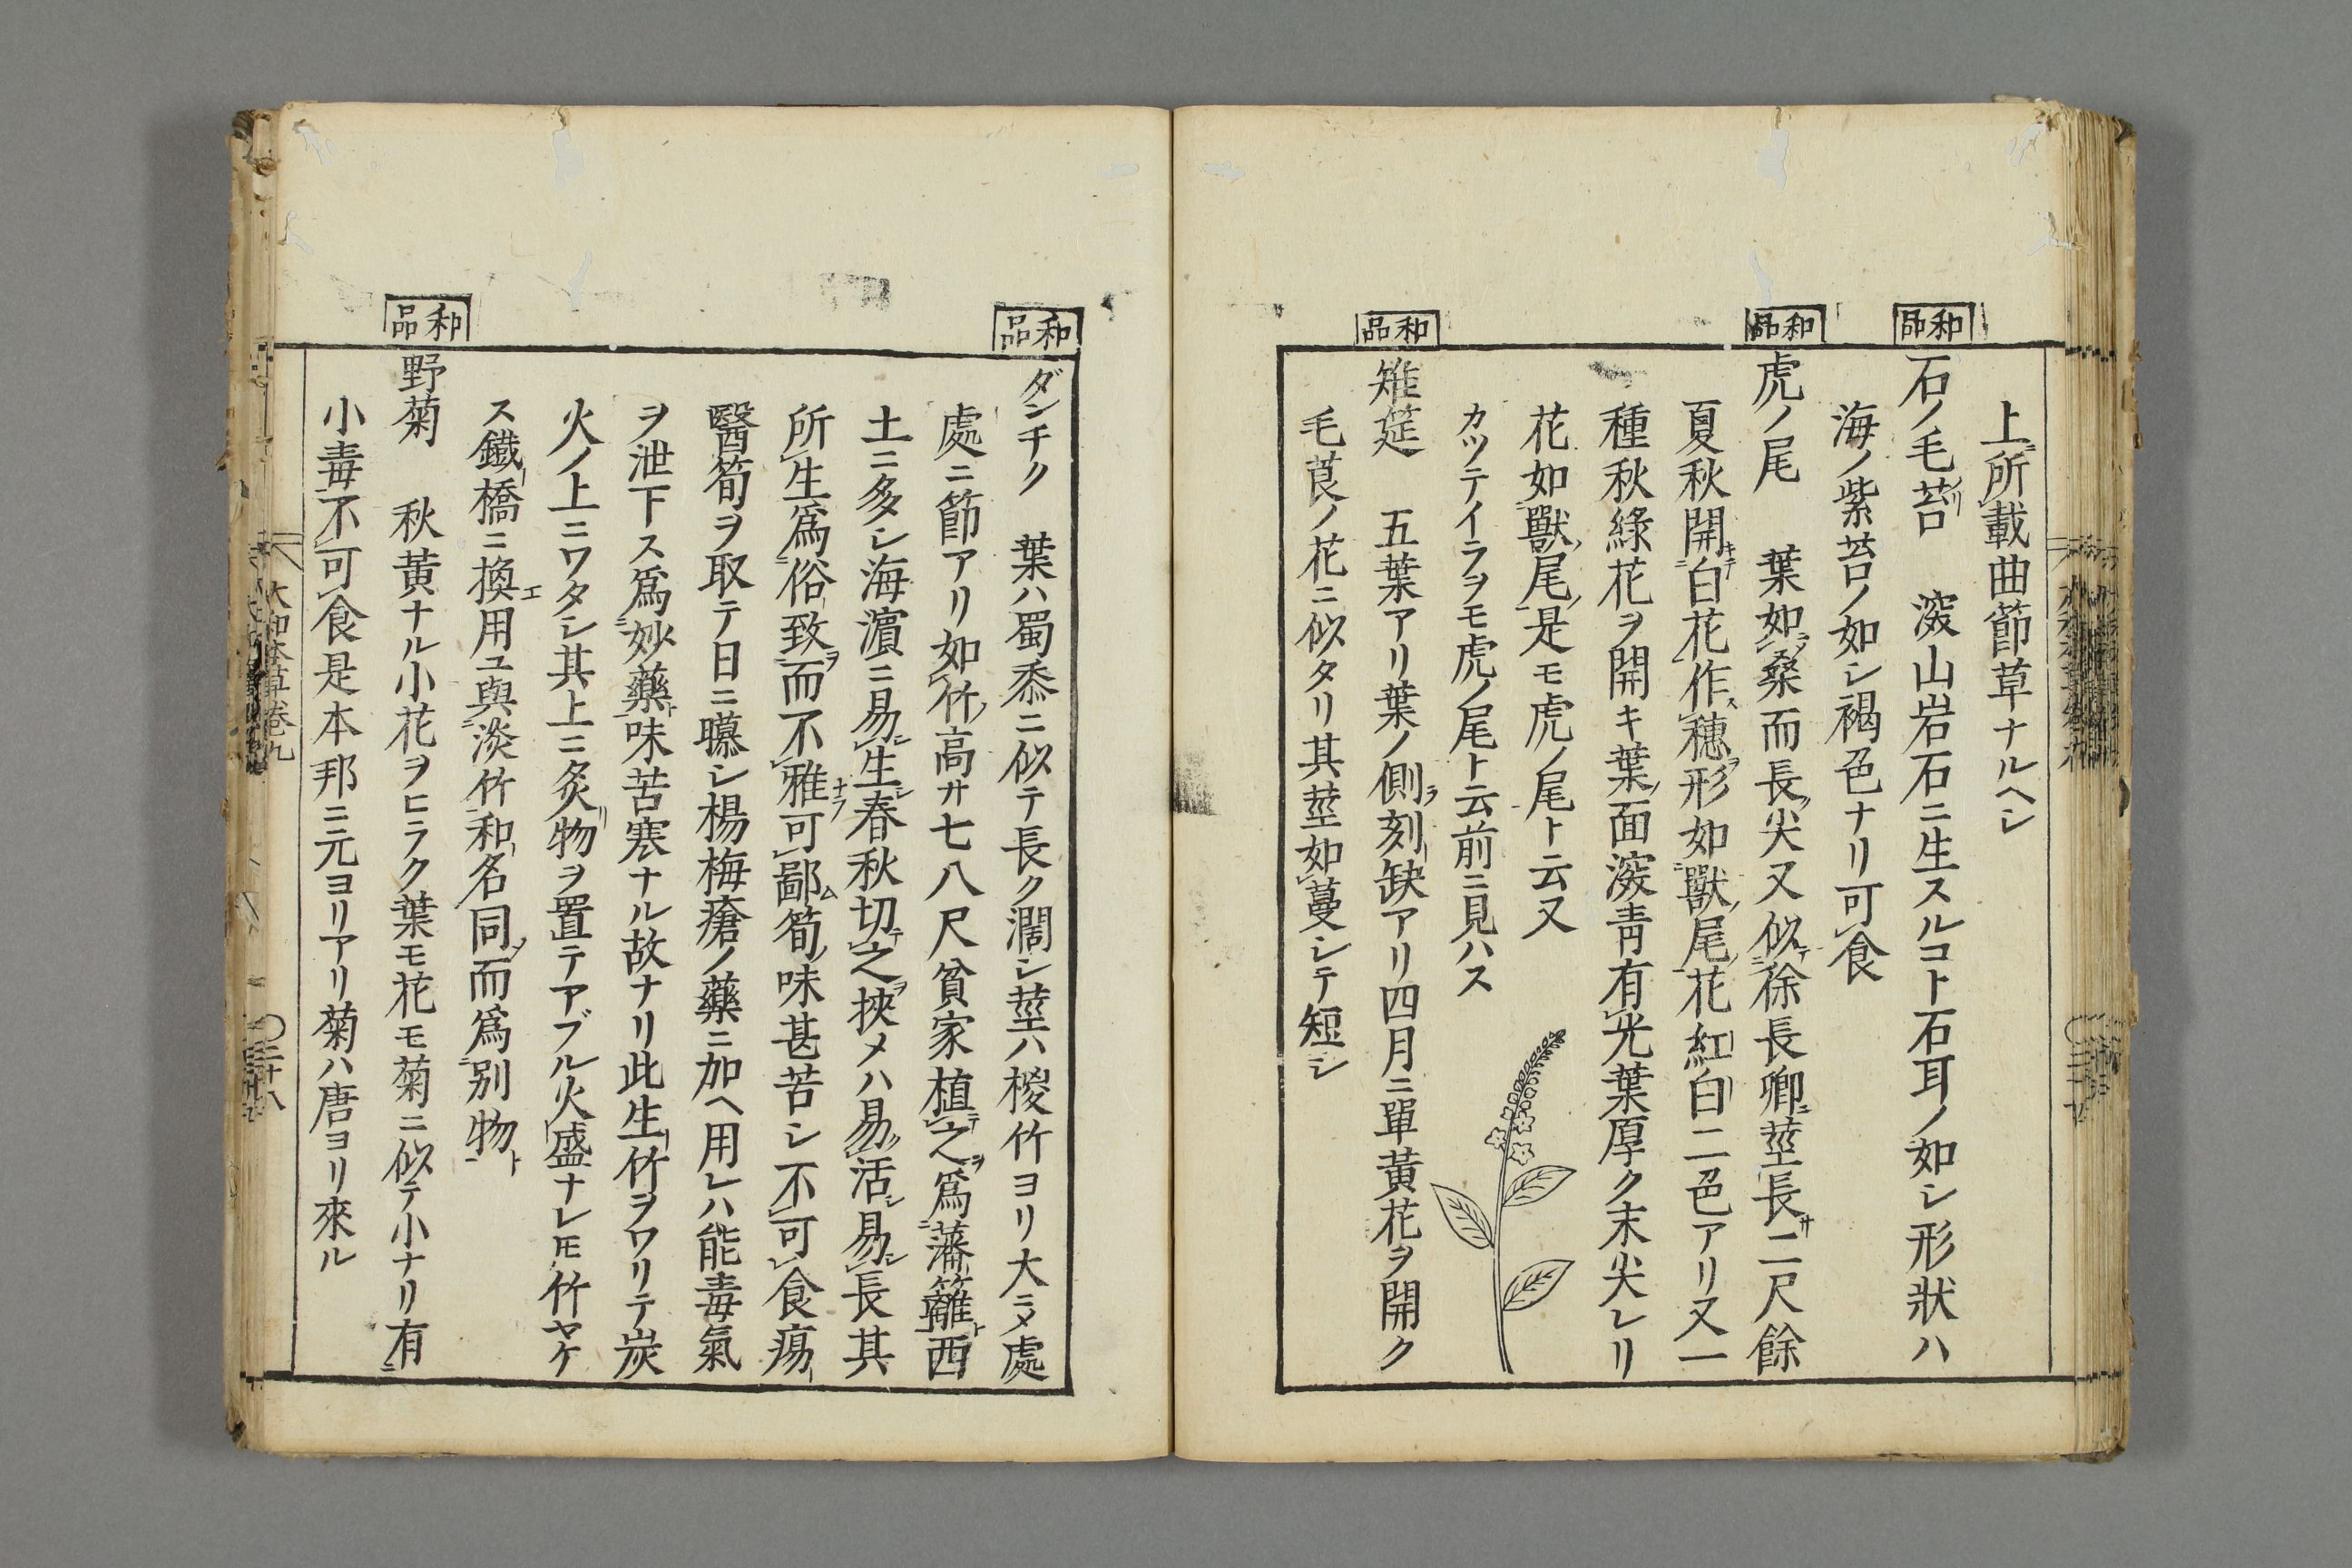 上所載曲節草ナルヘシ
和品
石ノ毛苔 深山岩石ニ生スルコト石耳ノ如シ形狀ハ
海ノ紫苔ノ如シ褐色ナリ可食
和品
虎ノ尾 葉如桑而長尖又似徐長卿莖長二尺餘
夏秋開白花作穗形如獸尾花紅白二色アリ又一
種秋綠花ヲ開キ葉面深青有光葉厚ク末尖レリ
花如獸尾是モ虎ノ尾ト云又
カツテイラヲモ虎ノ尾ト云前ニ見ハス
和品
雉莚 五葉アリ葉ノ側刻缺アリ四月ニ單黃花ヲ開ク
毛莨ノ花ニ似タリ其莖如蔓シテ短シ
和品
ダンチク 葉ハ蜀黍ニ似テ長ク濶シ莖ハ椶竹ヨリ大ニメ處
處ニ節アリ如竹高サ七八尺貧家植之爲藩籬西
土ニ多シ海濵ニ易生春秋切之挾メハ易活易長其
所生爲俗致而不雅可鄙筍味甚苦シ不可食瘍
醫筍ヲ取テ日ニ曝シ楊梅瘡ノ藥ニ加ヘ用レハ能毒氣
ヲ泄下ス爲妙藥味苦寒ナル故ナリ此生竹ヲワリテ炭
火ノ上ニワタシ其上ニ炙物ヲ置テアブル火盛ナレ𪜈竹ヤケ
ス鐵橋ニ換用ユ與淡竹和名同而爲別物
和品
野菊 秋黃ナル小花ヲヒラク葉モ花モ菊ニ似テ小ナリ有
小毒不可食是本邦ニ元ヨリアリ菊ハ唐ヨリ來ル
大和本草卷九
三十八